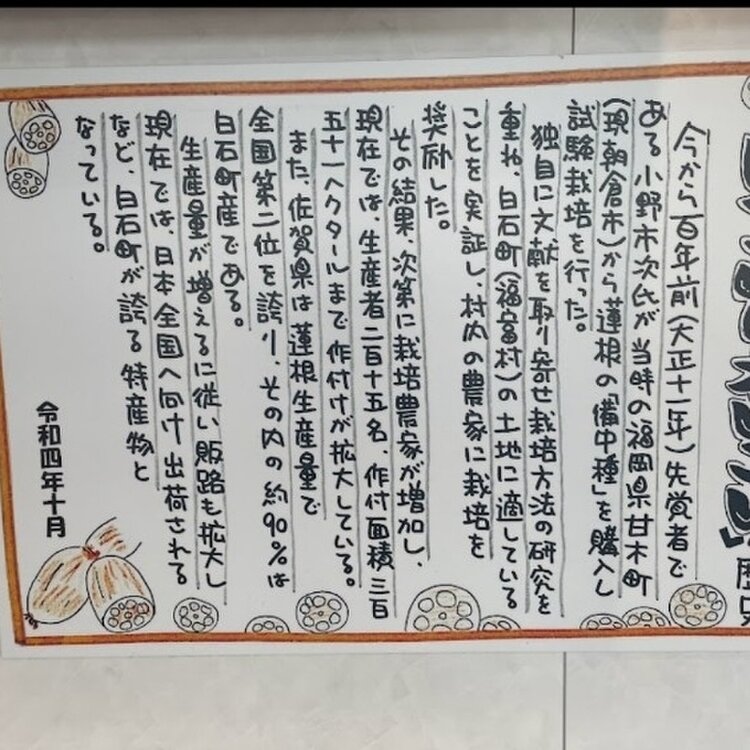 今から百年前(大正十一年)先覚者で
ある小野市次氏が当時の福岡県甘木町
(現朝倉市)から蓮根の「備中種」を購入し
試験栽培を行った。
独自に文献を取り寄せ栽培方法の研究を
重ね、白石町(福富村)の土地に適している
ことを実証し、村内の農家に栽培を
奨励した。
その結果、次第に栽培農家が増加し、
現在では、生産者二百十五名、作付面積三百
五十一ヘクタールまで作付けが拡大している。
また、佐賀県は蓮根生産量で
全国第二位を誇り、その内の約90%は
白石町産である。
生産量が増えるに従い販路も拡大し
現在では、日本全国へ向け出荷される
など、白石町が誇る特産物と
なっている。
令和四年十月